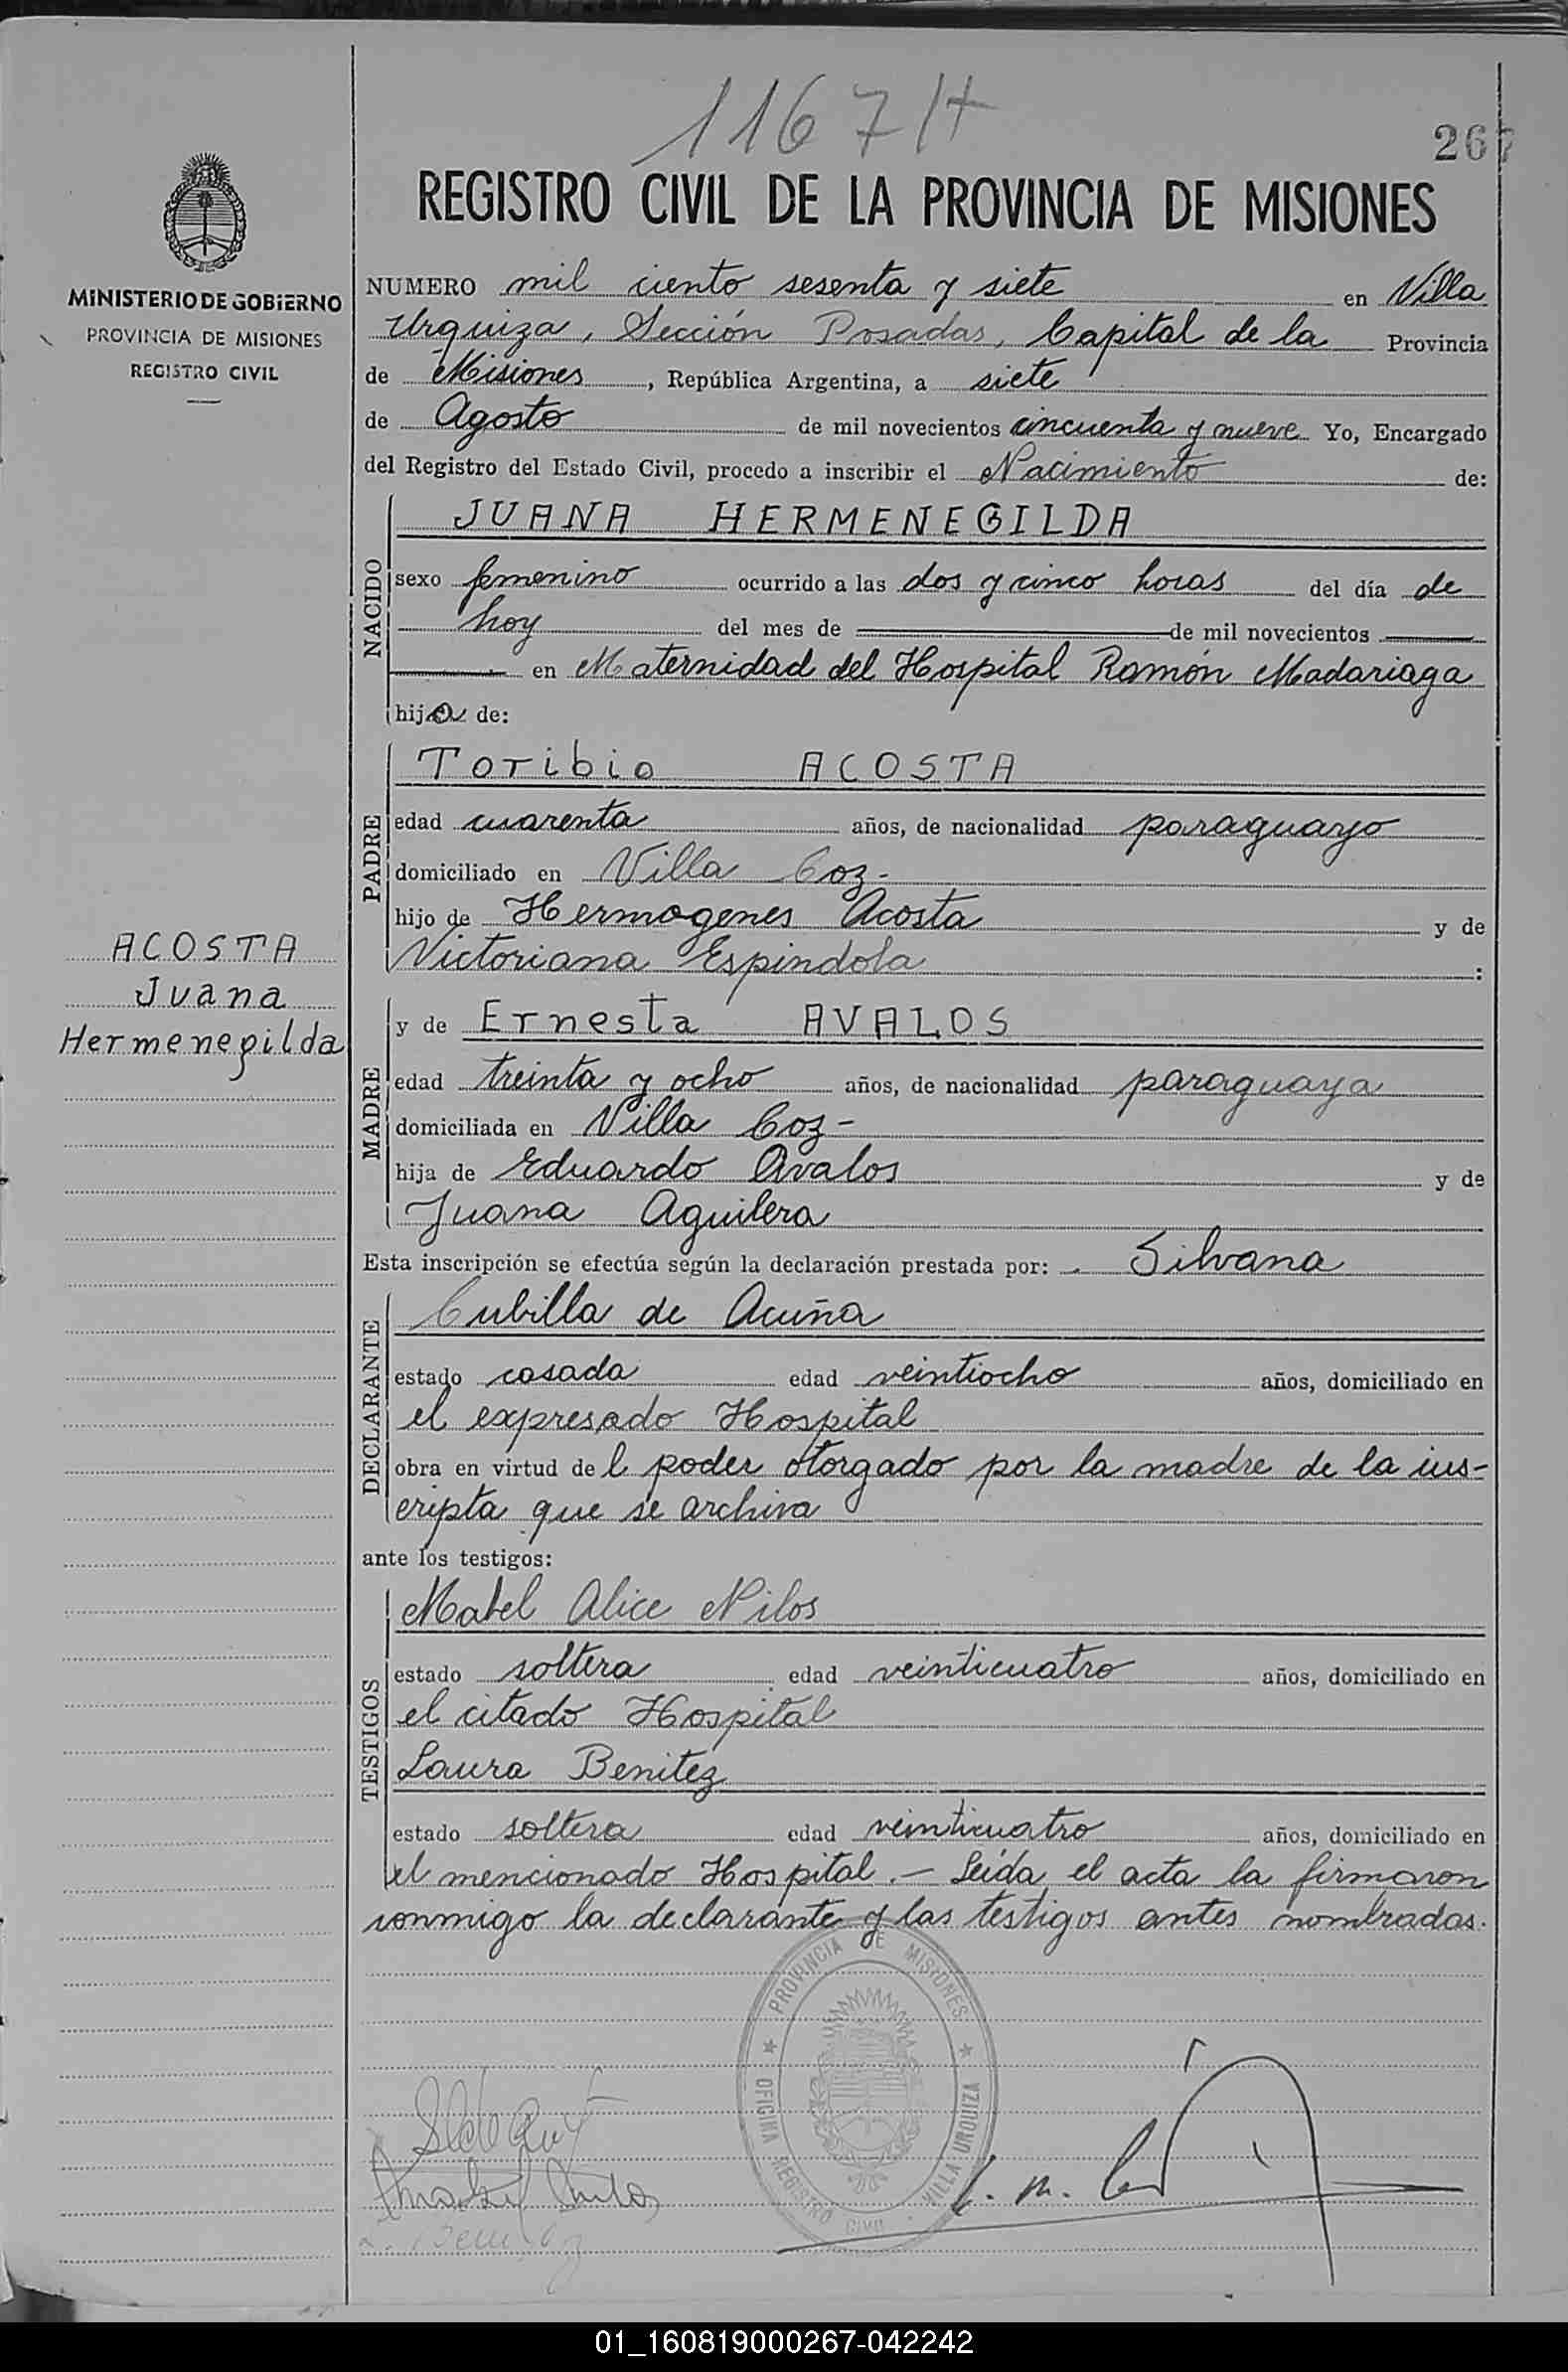 1167/+
267
REGISTRO CIVIL DE LA PROVINCIA DE MISIONES
MINISTERIO DE GOBIERNO
PROVINCIA DE MISIONES
REGISTRO CIVIL
NUMERO mil ciento sesenta y siete en Villa
Urquiza, Sección Posadas, Capital de la Provincia
de Misiones, República Argentina, a siete
de Agosto de mil novecientos cincuenta y nueve Yo, Encargado
del Registro del Estado Civil, procedo a inscribir el Nacimiento de:
NACIDO
JUANA HERMENEGILDA
sexo femenino ocurrido a las dos y cinco horas del día de
hoy del mes de de mil novecientos
en Maternidad del Hospital Ramón Madariaga
hija de:
PADRE
Toribio ACOSTA
edad cuarenta años, de nacionalidad paraguayo
domiciliado en Villa Coz-
hijo de Hermogenes Acosta y de
Victoriana Espindola :
ACOSTA
Juana
Hermenegilda
MADRE
y de Ernesta AVALOS
edad treinta y ocho años, de nacionalidad paraguaya
domiciliada en Villa Coz-
hija de Eduardo Avalos y de
Juana Aguilera
Esta inscripción se efectúa según la declaración prestada por: Silvana
DECLARANTE
Cubilla de Acuña
estado casada edad veintiocho años, domiciliado en
el expresado Hospital
obra en virtud del poder otorgado por la madre de la ins-
cripta que se archiva
ante los testigos:
TESTIGOS
Mabel Alice Nilos
estado soltera edad veinticuatro años, domiciliado en
el citado Hospital
Laura Benitez
estado soltera edad veinticuatro años, domiciliado en
el mencionado Hospital.- Leída el acta la firmaron
conmigo la declarante y las testigos antes nombradas.
PROVINCIA DE MISIONES
OFICINA REGISTRO CIVIL VILLA URQUIZA
01_160819000267-042242